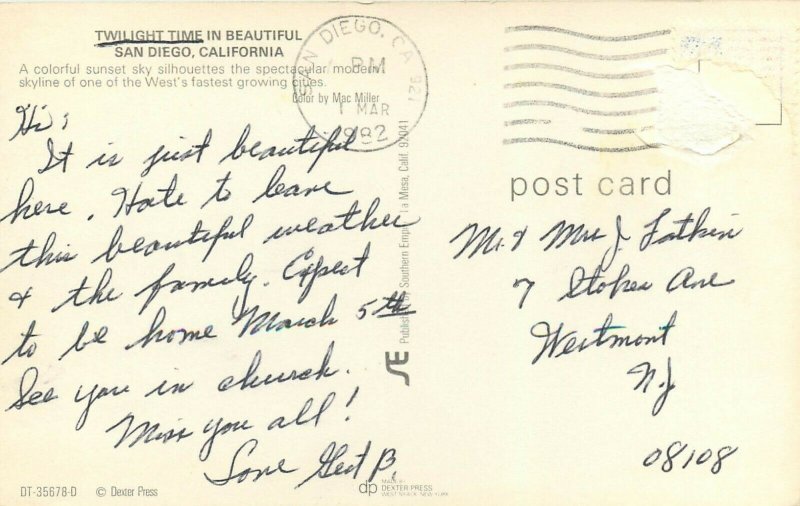 TWILIGHT TIME IN BEAUTIFUL
SAN DIEGO, CALIFORNIA
A colorful sunset sky silhouettes the spectacular modern
skyline of one of the West's fastest growing cities.
Color by Mac Miller
SAN DIEGO, CA 921
PM
1 MAR
1982
Hi;
It is just beautiful
here. Hate to leave
this beautiful weather
& the family. Expect
to be home March 5th
See you in church.
Miss you all!
Love Gert B.
Published by Southern Empire, La Mesa, Calif. 92041
SE
post card
Mr & Mrs J.
7 Stokes Ave
Westmont
N.J
08108
DT-35678-D © Dexter Press
dp
MADE BY
DEXTER PRESS
WEST NYACK, NEW YORK